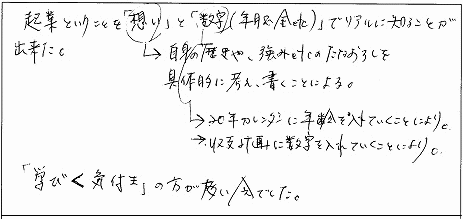 起業ということを「想い」と「数字(年月、金etc)」でリアルに知ることが
出来た。
→自身の歴史や、強みetcのたなおろしを
具体的に考え、書くことによる。
→20年カレンダーに年齢を入れていくことにより。
→収支計画に数字を入れていくことにより。
「学び<気付き」の方が多い会でした。